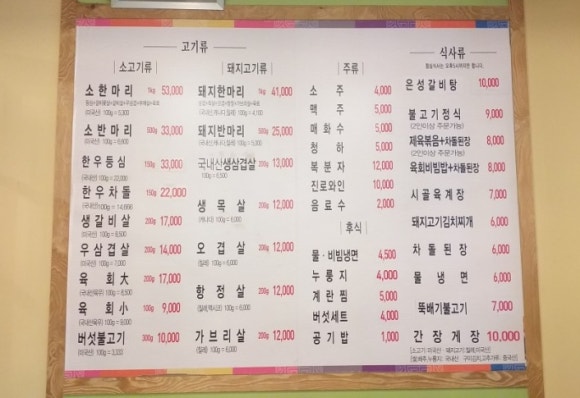 고기류
소고기류
소한마리 1kg 53,000
(미국산) 100g = 5,300
소반마리 500g 33,000
한우등심 150g 33,000
(국내산) 100g = 22,000
한우차돌 150g 22,000
(국내산) 100g = 14,666
생갈비살 200g 17,000
(미국산) 100g = 8,500
우삼겹살 200g 14,000
(미국산) 100g = 7,000
육회大 200g 17,000
(국내산육우) 100g = 8,500
육회小 100g 9,000
버섯불고기 300g 10,000
(미국산) 100g = 3,333
돼지고기류
돼지한마리 1kg 41,000
100g = 4,100
돼지반마리 500g 25,000
100g = 5,000
국내산생삼겹살 200g 13,000
100g = 6,500
생목살 200g 12,000
(캐나다) 100g = 6,000
오겹살 200g 12,000
(칠레) 100g = 6,000
항정살 200g 12,000
100g = 6,000
가브리살 200g 12,000
(칠레) 100g = 6,000
주류
소주 4,000
맥주 5,000
매화수 5,000
청하 5,000
복분자 12,000
진로와인 10,000
음료수 2,000
후식
물·비빔냉면 4,500
누룽지 4,000
계란찜 5,000
버섯세트 4,000
공기밥 1,000
식사류
은성갈비탕 10,000
불고기정식 9,000
(2인이상 주문가능)
제육볶음+차돌된장 8,000
(2인이상 주문가능)
육회비빔밥+차돌된장 8,000
시골육계장 7,000
돼지고기김치찌개 6,000
차돌된장 6,000
물냉면 6,000
뚝배기불고기 7,000
간장게장 10,000